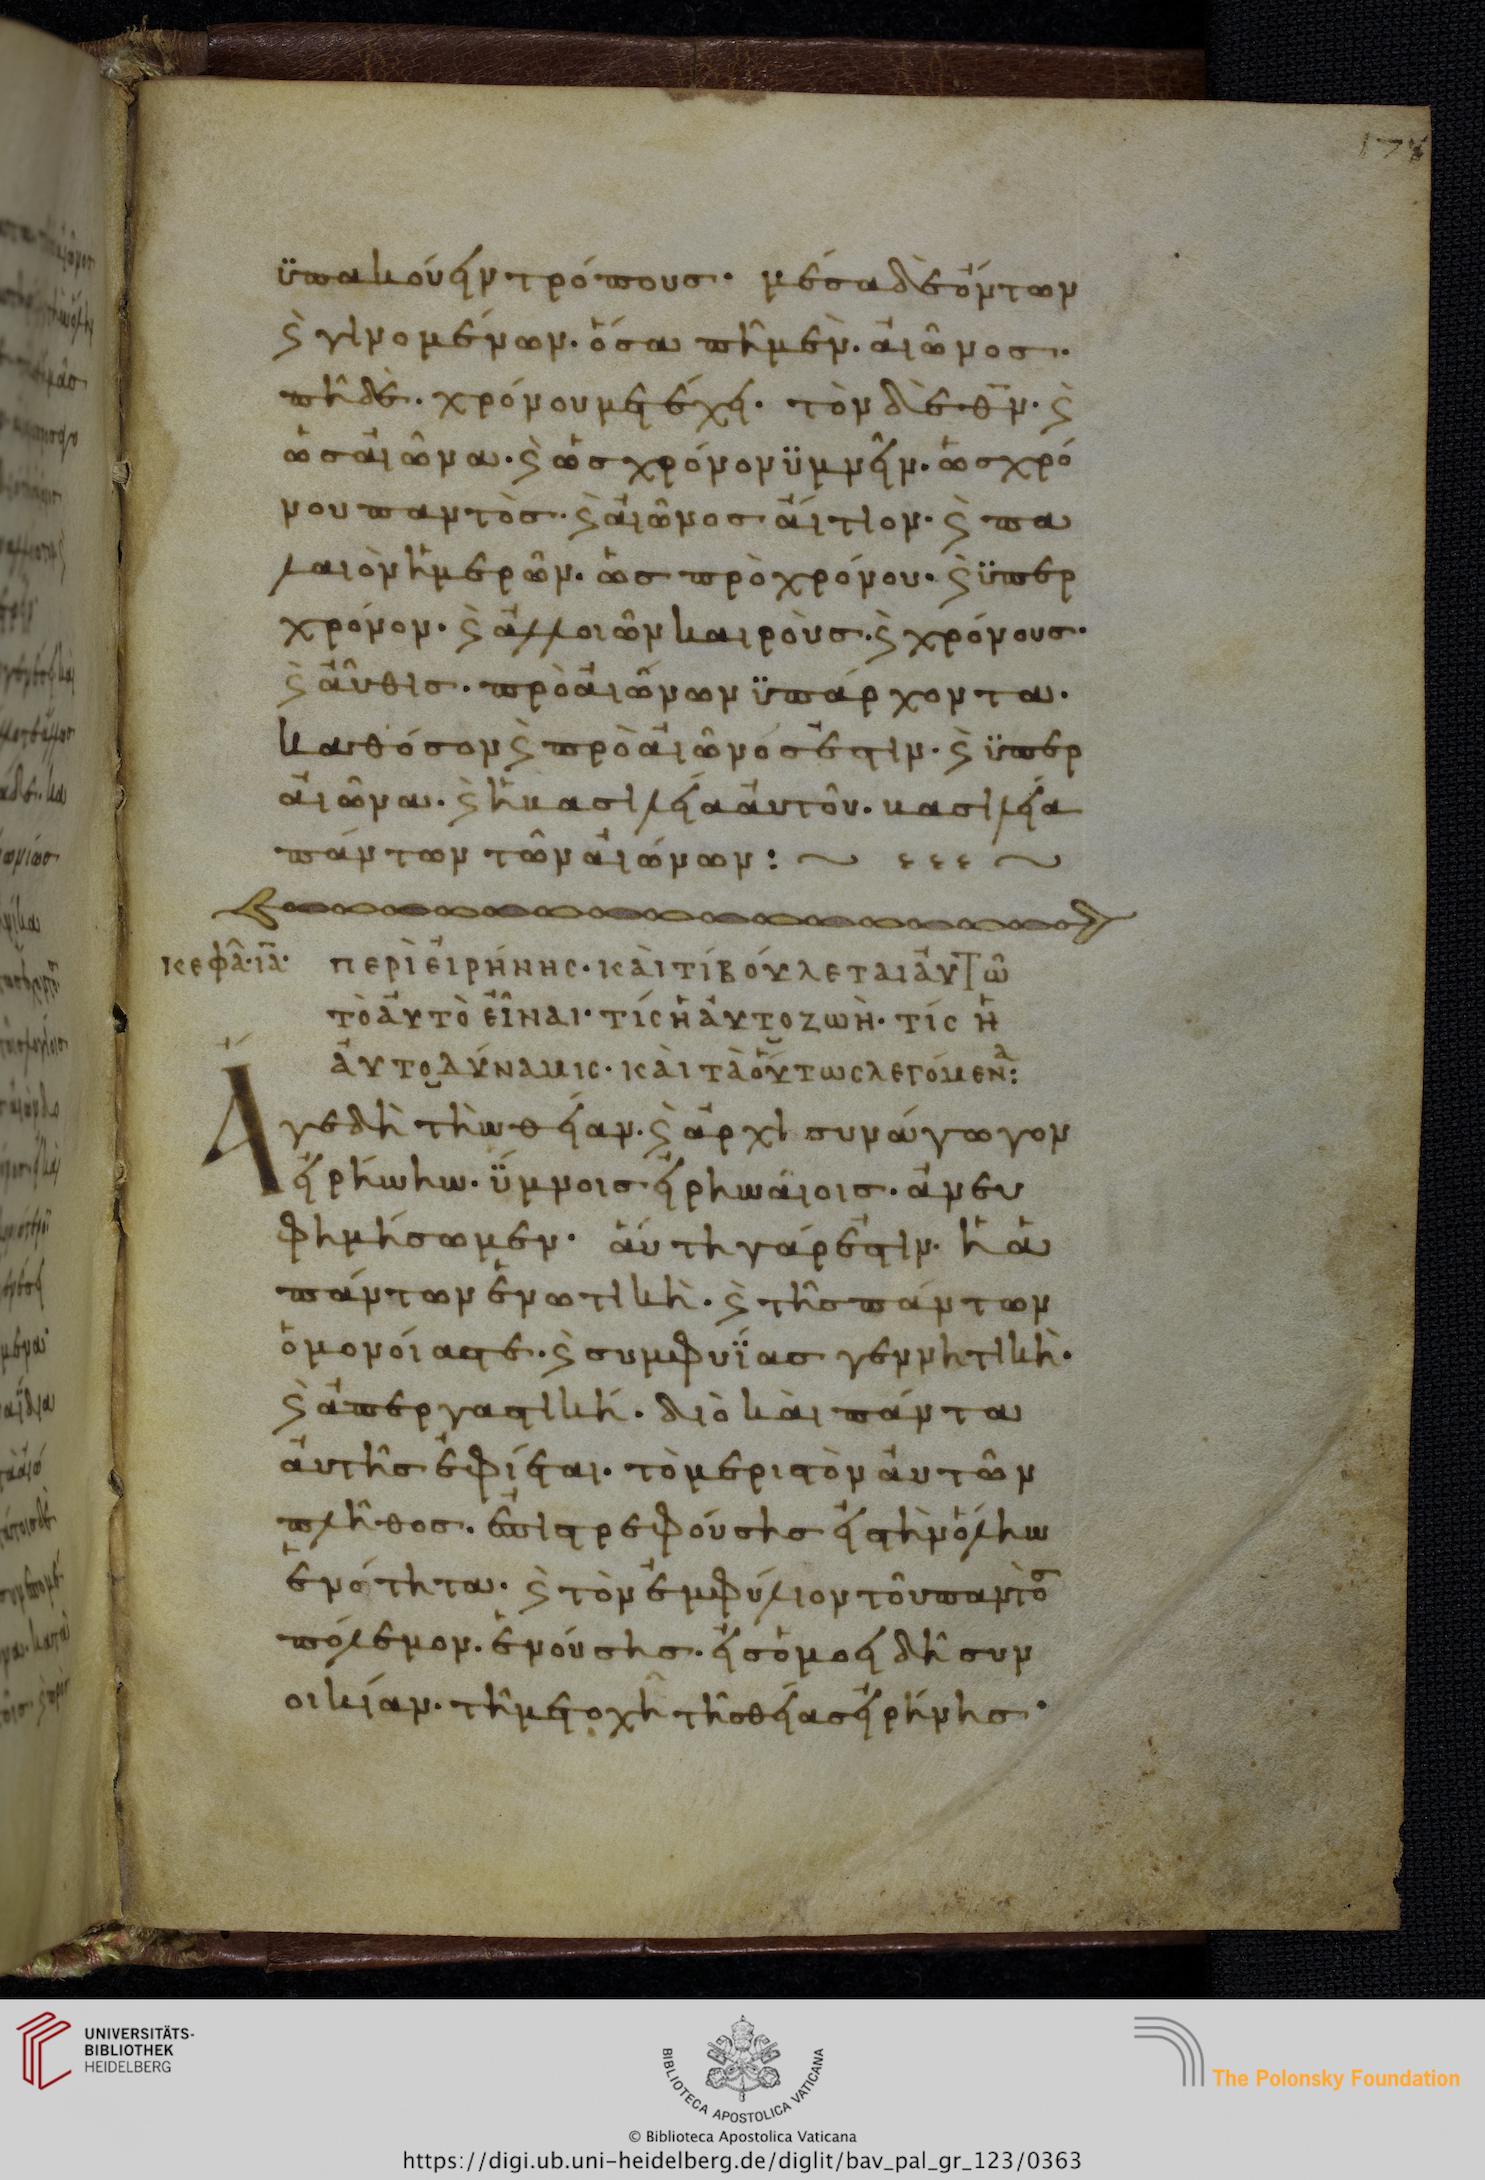 178
ϋπακούειν τρόπους· μέσα δὲ ὄντων
ϗ γινομένων· ὅσα πῆ μὲν· αἰῶνος·
πῆ δὲ· χρόνου μετέχει· τὸν δὲ θν̅· ϗ
ὡς αἰῶνα· ϗ ὡς χρόνον ϋμνεῖν· ὡς χρό
νου παντὸς· ϗ αἰῶνος αἴτιον· ϗ πα
λαιὸν ἡμερῶν· ὡς πρὸ χρόνου· ϗ ϋπερ
χρόνον· ϗ ἀλλοιῶν καιροὺς· ϗ χρόνους·
ϗ αὖθις· πρὸ αἰώνων ϋπάρχοντα·
καθόσον ϗ πρὸ αἰῶνός ἐστιν· ϗ ϋπερ
αἰῶνα· ϗ ἡ βασιλεία αὐτοῦ· βασιλεία
πάντων τῶν αἰώνων:
κεφα· ια· περὶ εἰρήνης· καὶ τί βούλεται αὐτῶ
τὸ αὐτὸ εἶναι· τίς ἡ αὐτοζωὴ· τίς ἡ
αὐτοδύναμις· καὶ τὰ οὕτως λεγόμενα:
Ἄγε δὴ τὴν θείαν· ϗ ἀρχισυνάγωγον
εἰρήνην· ὕμνοις εἰρηναίοις· ἀνευ
φημήσωμεν· αὕτη γάρ ἐστιν· ἡ ἁ
πάντων ἑνωτικὴ· ϗ τῆς πάντων
ὁμονοίας τε· ϗ συμφυΐας γεννητικὴ·
ϗ ἀπεργαστικὴ· διὸ καὶ πάντα
αὐτῆς ἐφίεται· τὸ μεριστὸν αὐτῶν
πλῆθος· ἐπιστρεφούσης εἰς τὴν ὅλην
ἑνότητα· ϗ τὸν ἐμφύλιον τοῦ παντὸς
πόλεμον· ἑνούσης· εἰς ὁμοειδῆ συν
οικίαν· τῆ μετοχῆ τῆς θείας εἰρήνης·
UNIVERSITÄTS-
BIBLIOTHEK
HEIDELBERG
BIBLIOTECA APOSTOLICA VATICANA
The Polonsky Foundation
© Biblioteca Apostolica Vaticana
https://digi.ub.uni-heidelberg.de/diglit/bav_pal_gr_123/0363